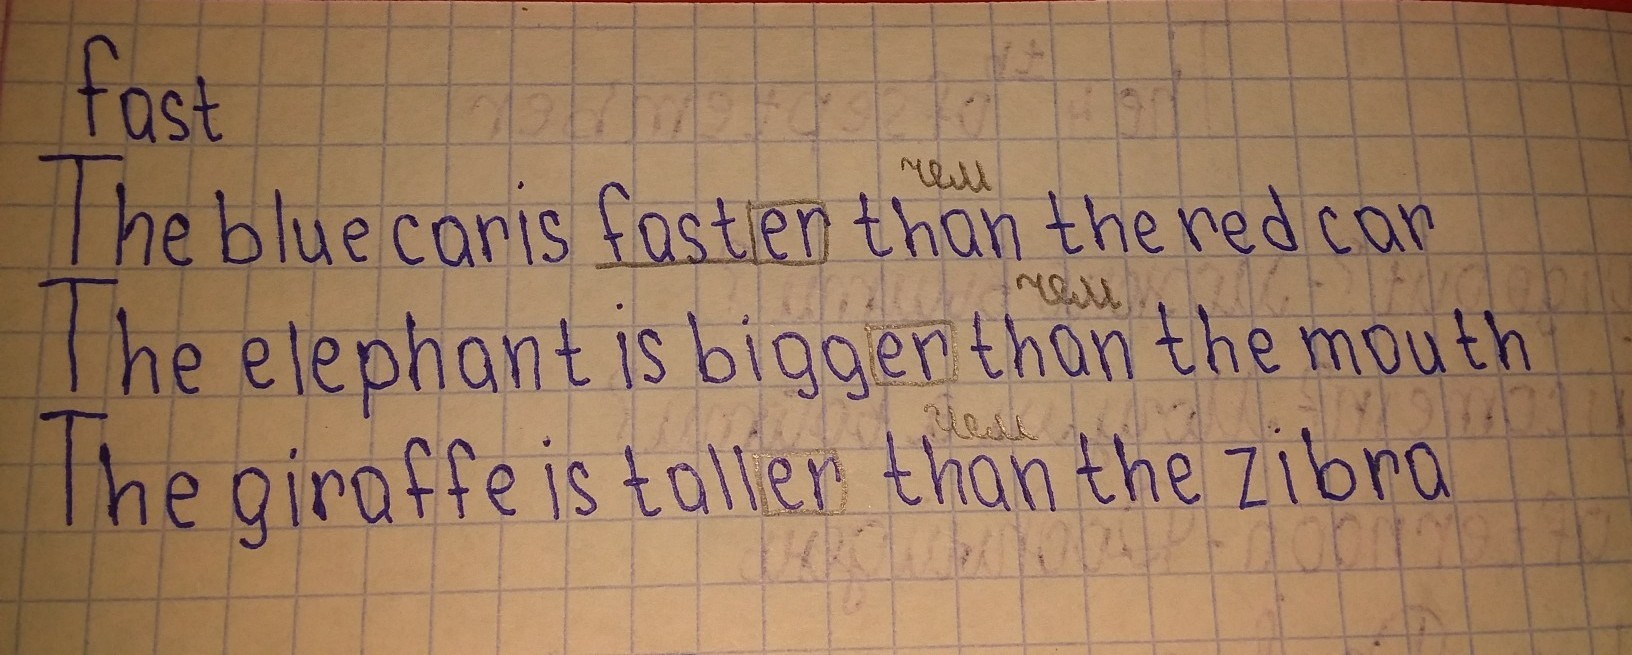 fast
чем
The blue car is faster than the red car
чем
The elephant is bigger than the mouth
чем
The giraffe is taller than the zibra